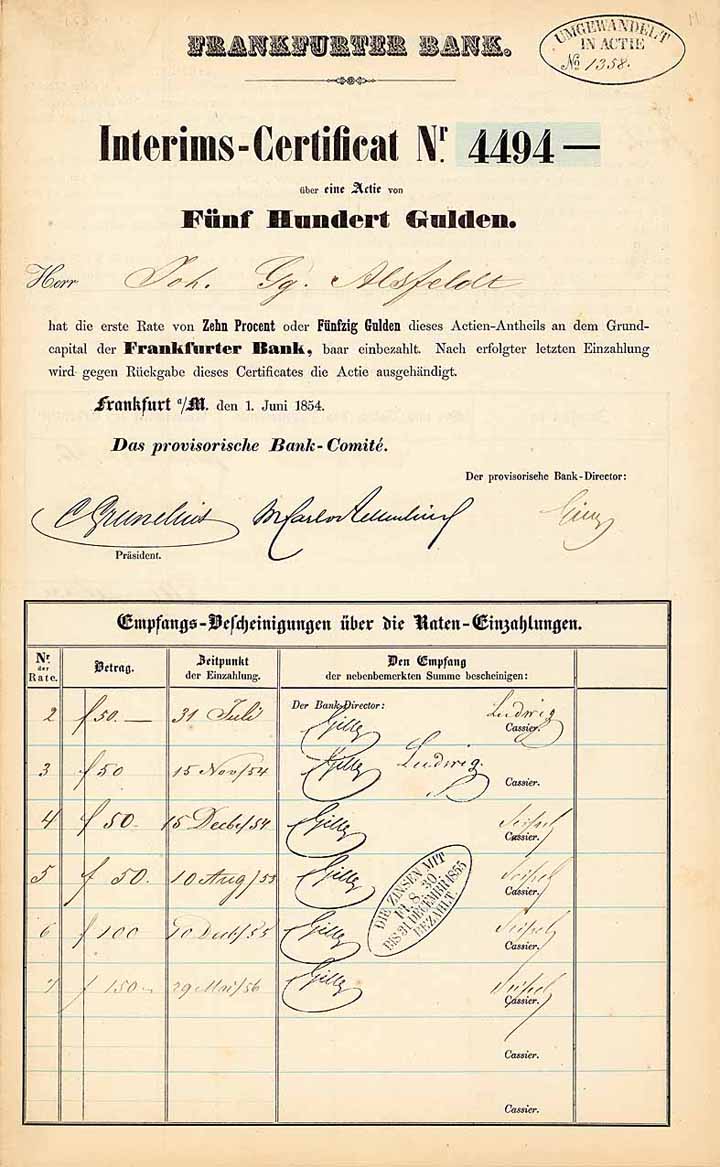 FRANKFURTER BANK.
UMGEWANDELT
IN ACTIE
No 1358.
Interims-Certificat Nr. 4494—
über eine Actie von
Fünf Hundert Gulden.
Herr Joh. Gg. Alsfeldt
hat die erste Rate von Zehn Procent oder Fünfzig Gulden dieses Actien-Antheils an dem Grund-
capital der Frankfurter Bank, baar einbezahlt. Nach erfolgter letzten Einzahlung
wird gegen Rückgabe dieses Certificates die Actie ausgehändigt.
Frankfurt a/M. den 1. Juni 1854.
Das provisorische Bank-Comité.
Der provisorische Bank-Director:
Präsident.
Empfangs-Bescheinigungen über die Raten-Einzahlungen.
Nr. der Rate. Betrag. Zeitpunkt der Einzahlung. Den Empfang der nebenbemerkten Summe bescheinigen:
Der Bank-Director:
2 f 50.— 31 Juli Ludwig Cassier.
3 f 50 15 Nov/54 Ludwig. Cassier.
4 f 50. 15 Decbr/54 Cassier.
5 f 50. 10 Aug/55 Cassier.
DIE ZINSEN MIT
Fl. 8. 30
BIS 31 DECEMBR 1855
BEZAHLT
6 f 100 10 Decb/55 Cassier.
7 f 150— 29 Mai/56 Cassier.
Cassier.
Cassier.